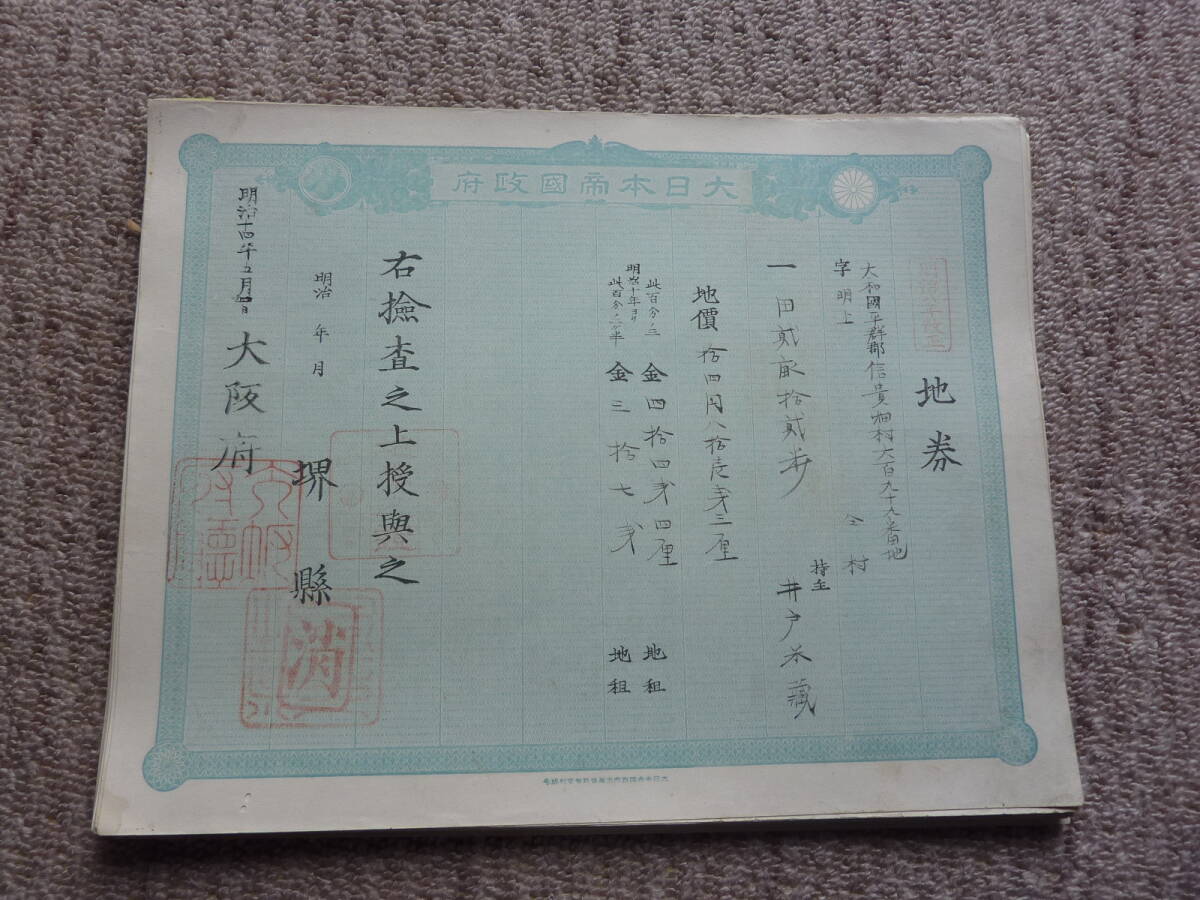 大日本帝國政府
地券
大和國平群郡信貴畑村六百九十九番地
字明上
仝村
一田貳畝拾貳歩
持主
井戸米藏
地價拾四円八拾壱銭三厘
此百分ノ三金四拾四銭四厘地租
明治十年ヨリ
此百分ノ二ヶ半金三拾七銭地租
右撿査之上授與之
明治年月
堺縣
消
明治十四年五月四日
大阪府